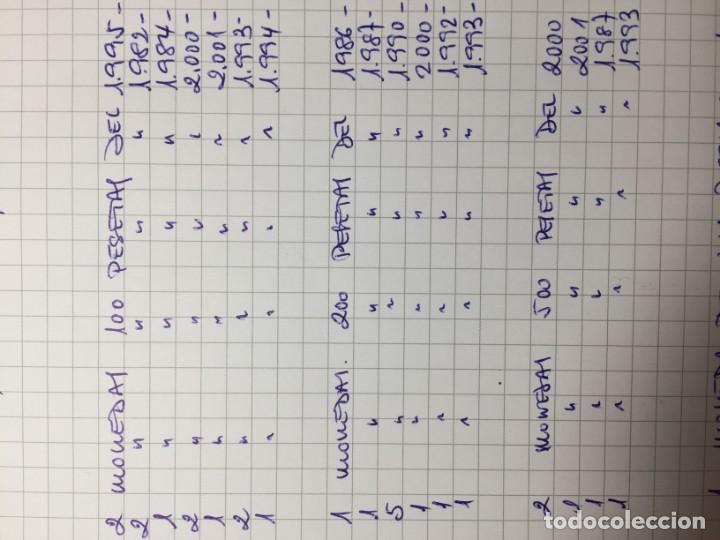 2 MONEDAS 100 PESETAS DEL 1.995-
2 " " " " 1.982-
1 " " " " 1.984-
2 " " " " 2.000-
1 " " " " 2.001-
2 " " " " 1.993-
1 " " " " 1.994-
1 MONEDAS. 200 PESETAS DEL 1986-
1 " " " " 1.987-
5 " " " " 1.990-
1 " " " " 2000-
1 " " " " 1.992-
1 " " " " 1.993-
2 MONEDAS 500 PESETAS DEL 2000
" " " " 2001
1 " " " " 1.987
1 " " " " 1.993
todocoleccion